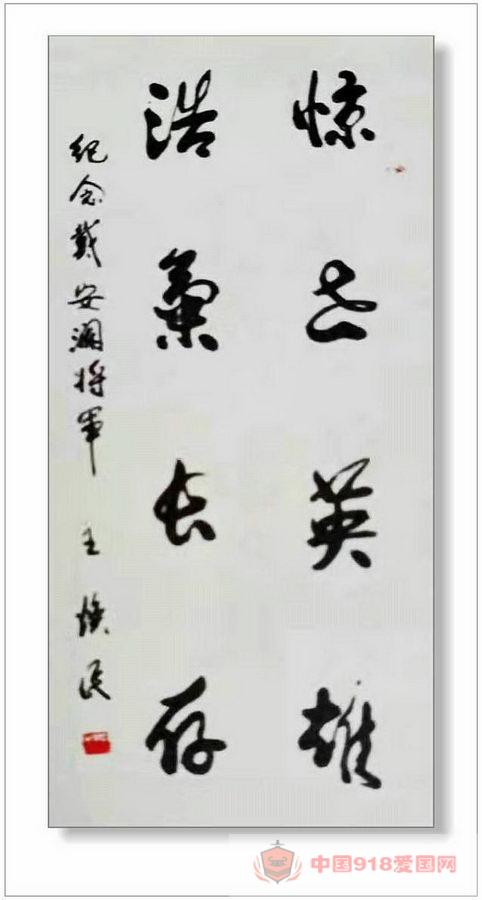 惊世英雄
浩氣长存
纪念戴安澜将军 王焕民
中国918爱国网